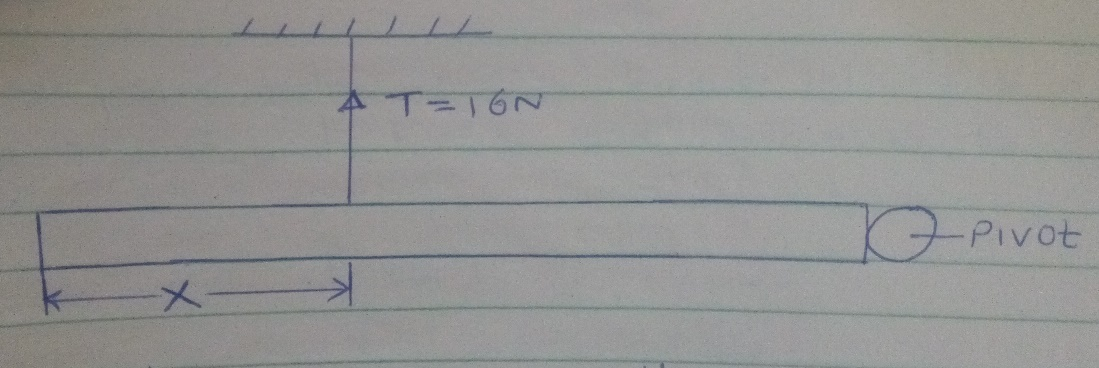 T=16N
Pivot
X